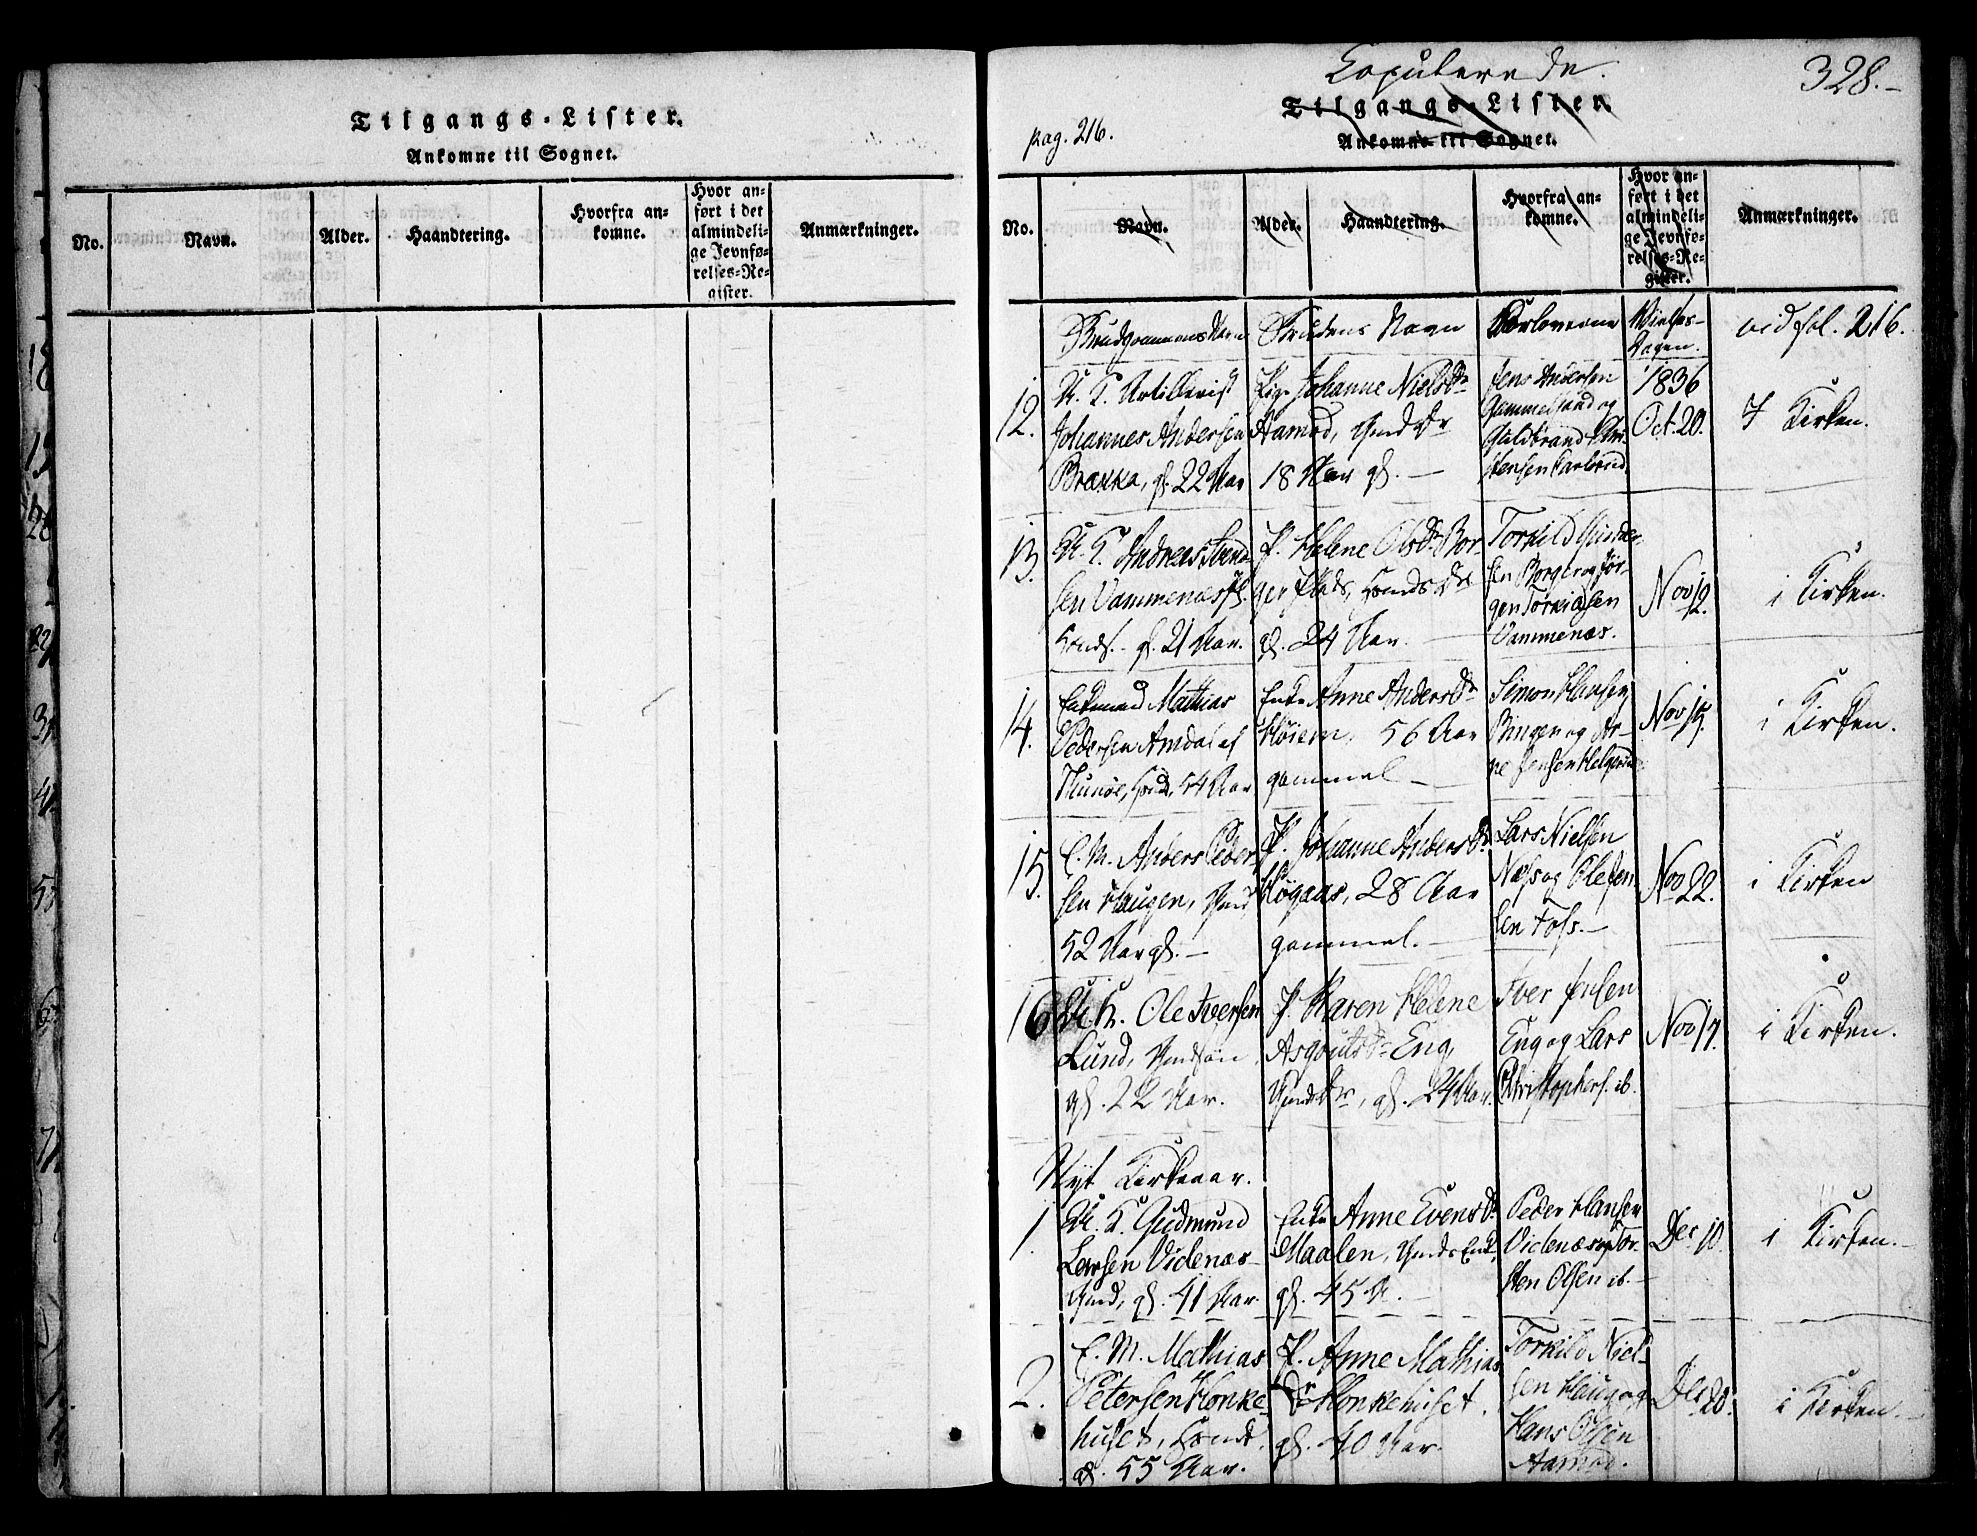 Tilgangs-Lister.
Ankomne til Sognet.
No.
Navn.
Alder.
Haandtering.
Hvorfra an-
komne.
Hvor an-
ført i det
almindeli-
ge Jevnfø-
relses-Re-
gister.
Anmærkninger.
Copulerede.
328.-
Tilgangs-Lister.
pag. 216.
Ankomne til Sognet.
No.
Navn.
Alder.
Haandtering.
Hvorfra an-
komne.
Hvor an-
ført i det
almindeli-
ge Jevnfø-
relses-Re-
gister.
Anmærkninger.
Brudgommens Navn
Brudens Navn
Forloverne
Vielses-
Dagen.
vid fol. 216.
12.
U. K. Artillerist
Johannes Andersen
Brækka, gl. 22 Aar
Pige Johanne Nielsdr
Aamod, Gmd Dr
18 Aar gl. -
Jens Andersen
Gammelsand og
Guldbrand Chri-
stensen
1836
Oct. 20.
I Kirken.
13.
U. K. Andreas
sen Vammenæs
gl. 21 Aar.
P. Helene Olsdr Bor-
ger
gl. 24 Aar.
Torkild Gunder-
sen Borger og Jør-
gen Torkildsen
Vammenæs.
Nov 12.
i Kirken.
14.
Enkemand Mathias
Pedersen Amdal af
54 Aar
Enke Anne Andersdr
Høiem, 56 Aar
gammel -
Simon Hansen
Bingen og Ar-
ne Jensen
Nov 15.
i Kirken.
15.
E. M. Anders Peder-
sen Haugen, Gmd
52 Aar gl. -
P. Johanne Andersdr
Høgaas, 28 Aar
gammel. -
Lars Nielsen
Næs og Ole Jen-
sen Foss. -
Nov 22.
i Kirken
16
U. K. Ole Iversen
Lund, Gmdsøn
gl. 22 Aar.
P. Maren Helene
Asgoutsdr Eng,
Gmds Dr, gl. 24 Aar.
Iver Jensen
Eng og Lars
Christophers. ib.
Nov 17.
i Kirken.
Nyt Kirkeaar.
1.
U. K. Gudmund
Larsen Videnæs
Gmd, gl. 41 Aar.
Enke Anne Evensdr
Maalen, Gmds Enke
gl. 45 A. -
Peder Hansen
Videnæs og Tor-
sten Olsen ib. -
Dec. 10.
i Kirken. -
2.
E. M. Mathias
Petersen Honke-
huset,
gl. 55 Aar.
P. Anne Mathias
Dr Honkehuset.
gl. 40 Aar.
Torkild Niel-
sen Haug og
Hans Olsen
Aamod.
Dec 20.
i Kirken. -